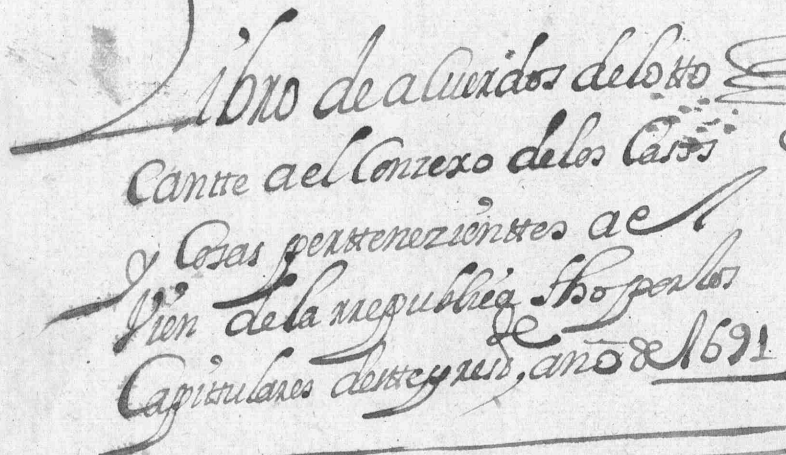 Libro de acuerdos de lo tto
cantte a el Conzexo de los Casos
y Cosas perttenezienttes a el
Vien de la rrepublica fho por los
Capittulares de
año de 1691